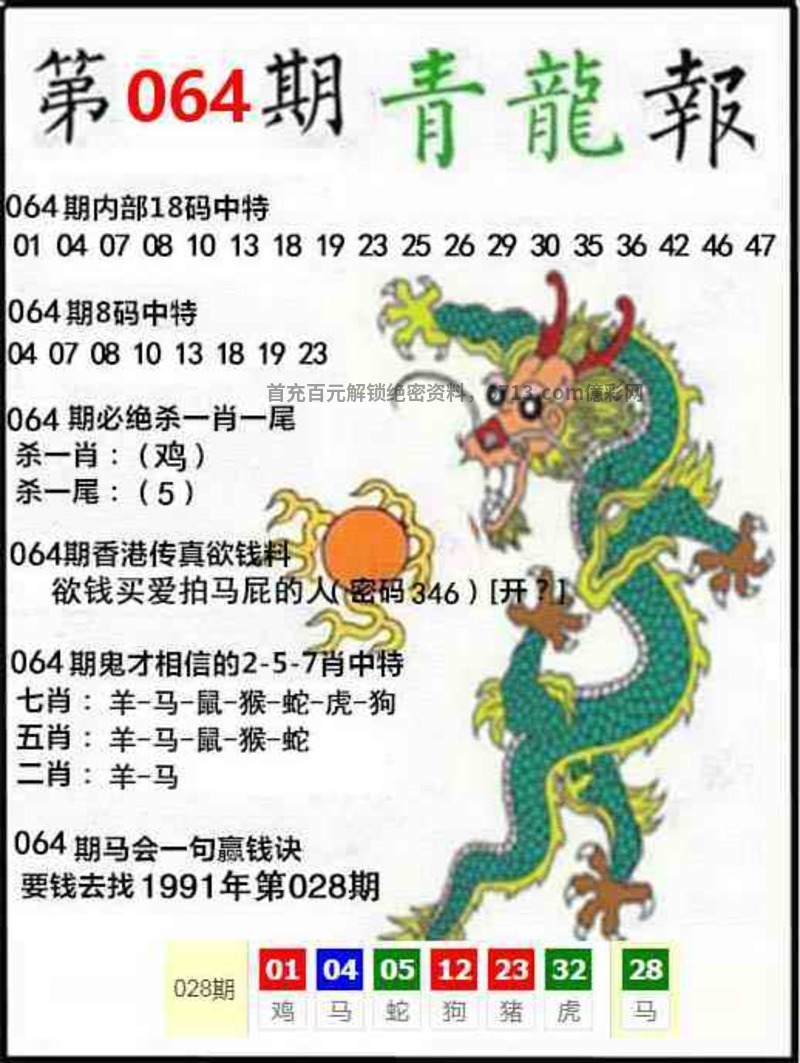 第064期青龍報
064期内部18码中特
01 04 07 08 10 13 18 19 23 25 26 29 30 35 36 42 46 47
064期8码中特
04 07 08 10 13 18 19 23
首充百元解锁绝密资料，713.com億彩网
064 期必绝杀一肖一尾
杀一肖：（鸡）
杀一尾：（5）
064期香港传真欲钱料
欲钱买爱拍马屁的人(密码346)[开？]
064期鬼才相信的2-5-7肖中特
七肖：羊-马-鼠-猴-蛇-虎-狗
五肖：羊-马-鼠-猴-蛇
二肖：羊-马
064期马会一句赢钱诀
要钱去找1991年第028期
028期 01 04 05 12 23 32 28
鸡 马 蛇 狗 猪 虎 马